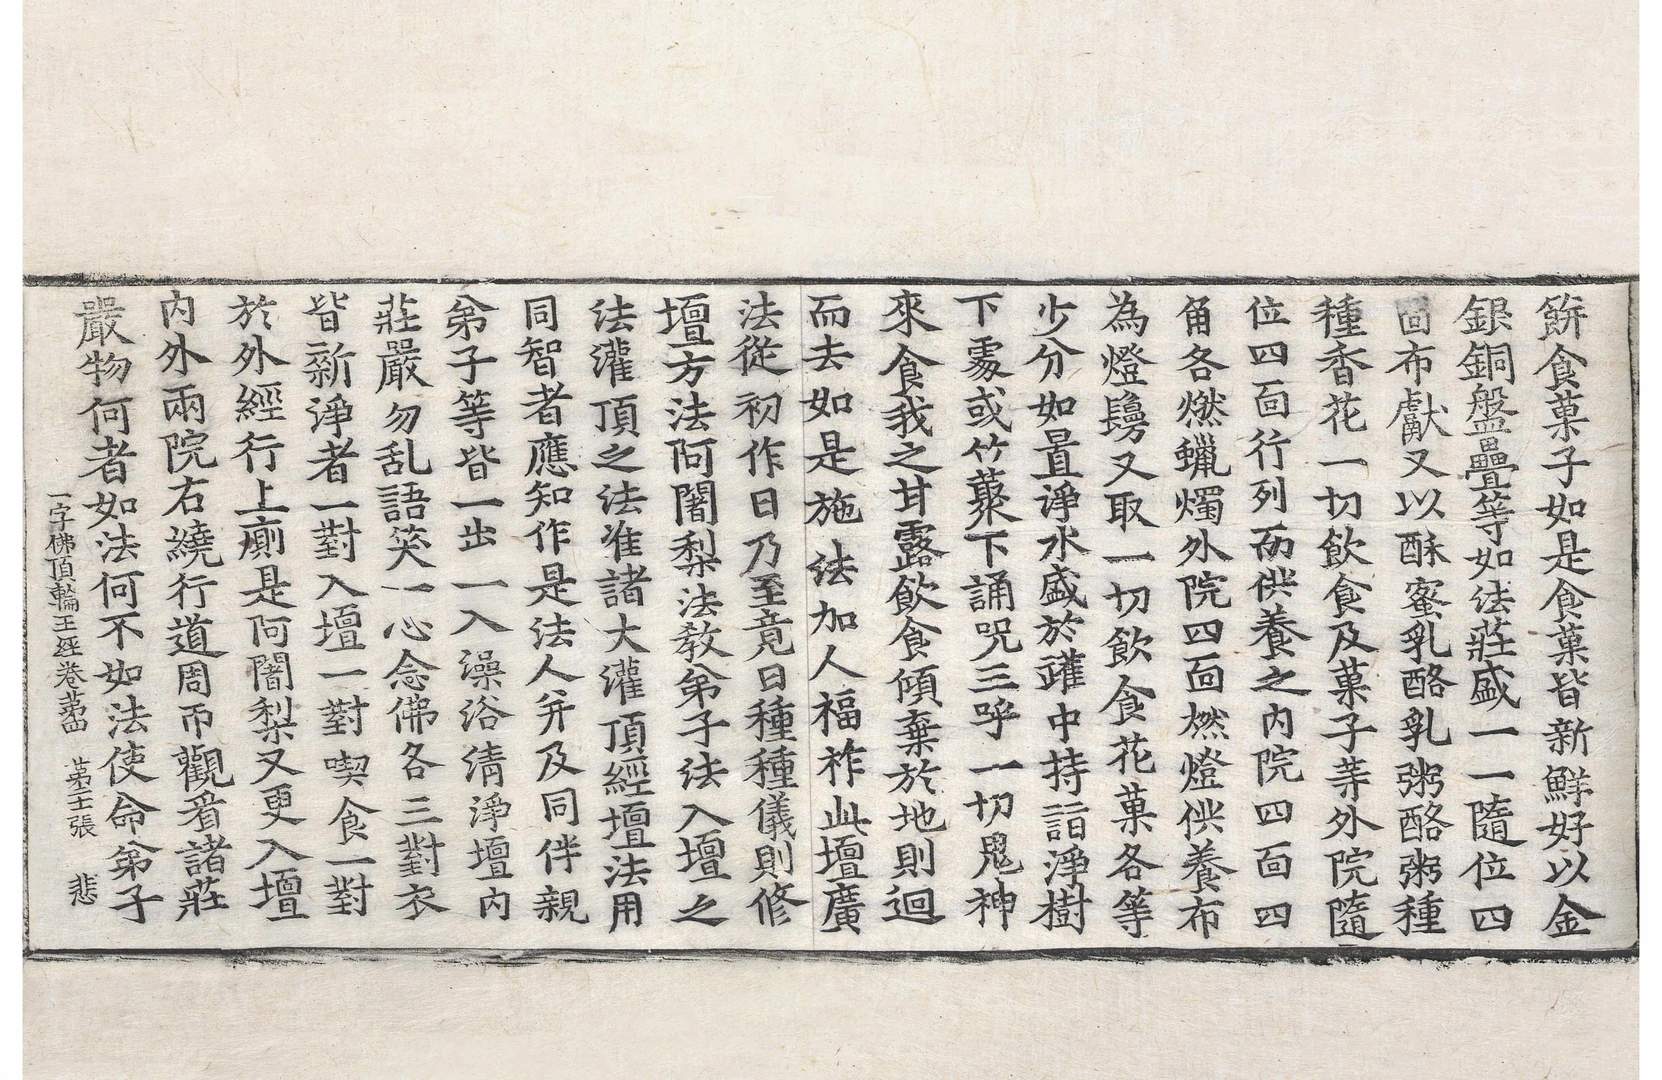 餅食菓子如是食菓皆新鮮好以金
銀銅盤疊等如法莊盛一一隨位四
面布獻又以酥蜜乳酪乳粥酪粥種
種香花一切飲食及菓子䓁外院隨
位四面行列而供養之內院四面四
角各燃蠟燭外院四面燃燈供養布
為燈鬘又取一切飲食花菓各等
少分如置淨水盛於罐中持詣淨樹
下處或竹藂下誦呪三呼一切鬼神
來食我之甘露飲食傾棄於地則迴
而去如是施法加人福祚此壇廣
法從初作日乃至竟日種種儀則修
壇方法阿闍梨法教弟子法入壇之
法灌頂之法准諸大灌頂經壇法用
同智者應知作是法人并及同伴親
弟子等皆一出一入澡浴清淨壇內
莊嚴勿乱語笑一心念佛各三對衣
皆新淨者一對入壇一對喫食一對
於外經行上廁是阿闍梨又更入壇
內外兩院右繞行道周帀觀看諸莊
嚴物何者如法何不如法使命弟子
一字佛頂輪王經卷苐四 苐二十張 悲